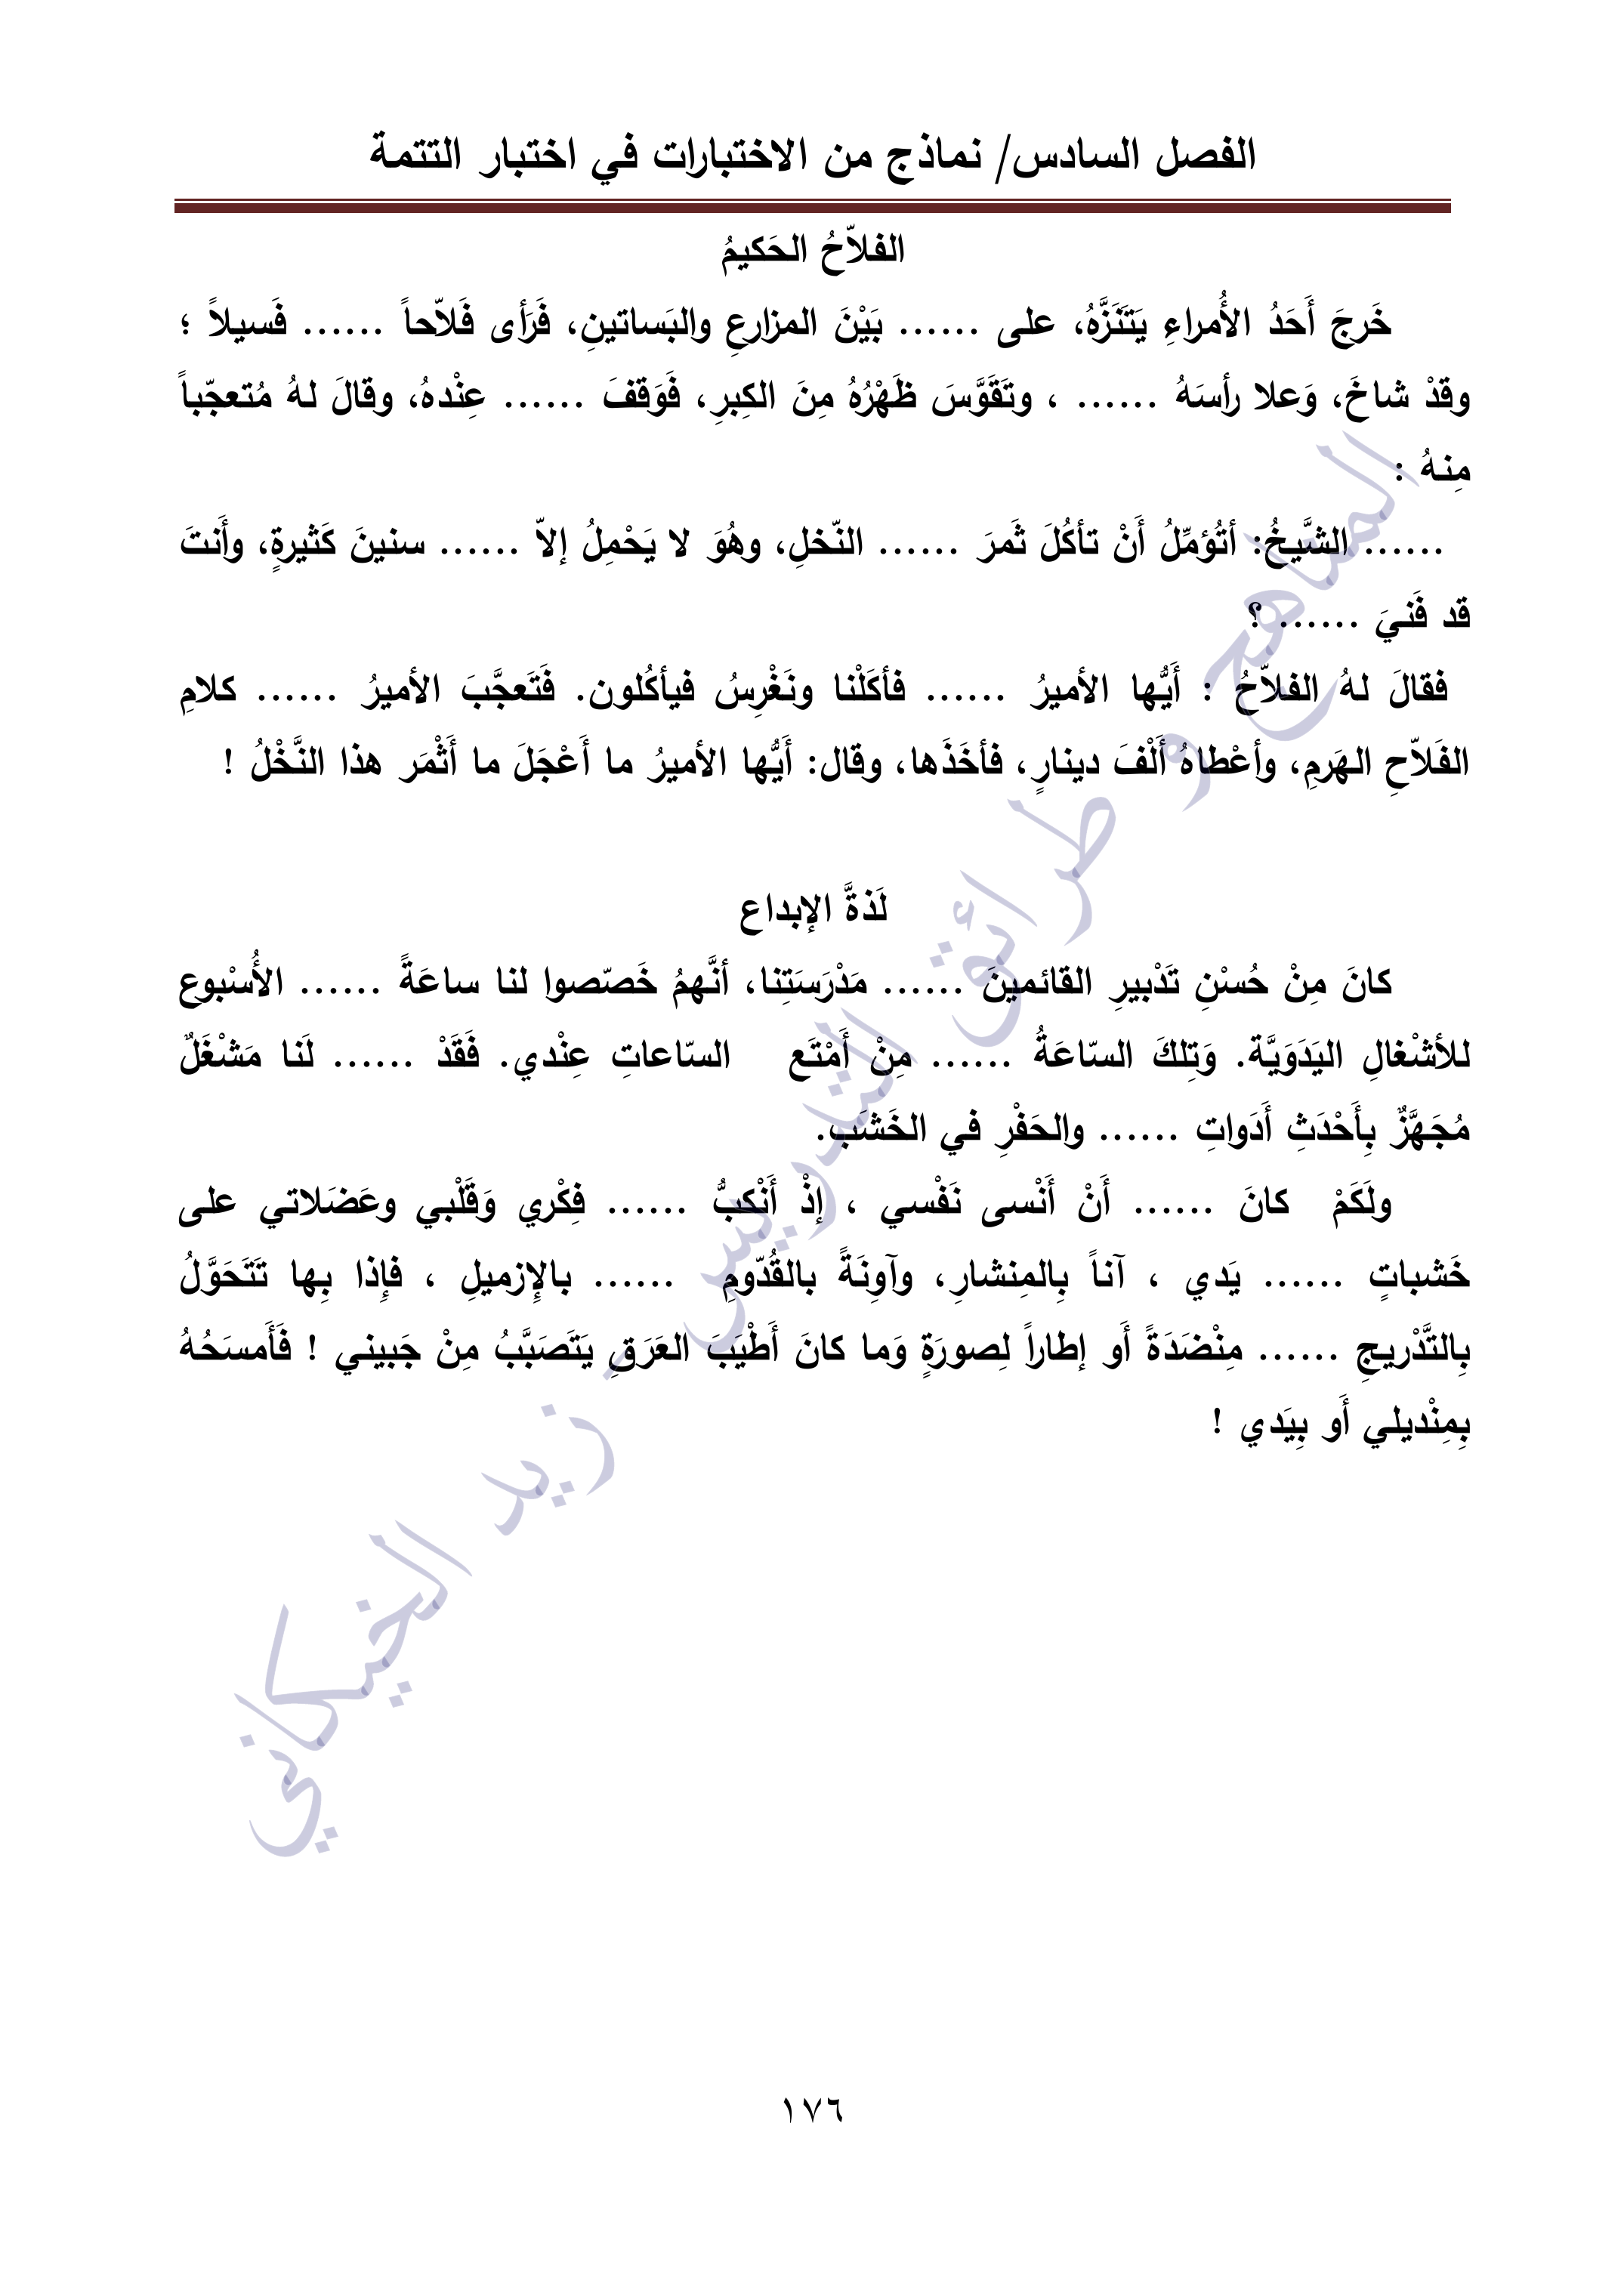 الفصل السادس/ نماذج من الاختبارات في اختبار التتمة
الفلاّحُ الحَكيمُ
خَرجَ أَحَدُ الأُمراءِ يَتَنَزَّهُ، على ...... بَيْنَ المزارعِ والبَساتينِ، فَرَأى فَلاّحاً ...... فَسيلاً ؛
وقدْ شاخَ، وَعلا رأسَهُ ...... ، وتَقَوَّسَ ظَهْرُهُ مِنَ الكِبرِ، فَوَقفَ ...... عِنْدهُ، وقالَ لهُ مُتعجّباً
مِنهُ :
...... الشَّيخُ: أتُؤمِّلُ أَنْ تأكُلَ ثَمرَ ...... النّخلِ، وهُوَ لا يَحْمِلُ إلاّ ...... سنينَ كَثيرةٍ، وأَنتَ
قد فَنيَ ...... ؟
فقالَ لهُ الفلاّحُ : أَيُّها الأميرُ ...... فأكَلْنا ونَغْرِسُ فيأكُلون. فَتَعجَّبَ الأميرُ ...... كلامِ
الفَلاّحِ الهَرمِ، وأعْطاهُ أَلْفَ دينارٍ، فأخَذَها، وقال: أَيُّها الأميرُ ما أَعْجَلَ ما أَثْمَر هذا النَّخْلُ !
لَذةَّ الإبداع
كانَ مِنْ حُسْنِ تَدْبيرِ القائمينَ ...... مَدْرَسَتِنا، أنَّهمُ خَصّصوا لنا ساعَةً ...... الأُسْبوع
للأشْغالِ اليَدَوَيَّة. وَتِلكَ السّاعَةُ ...... مِنْ أَمْتَع السّاعاتِ عِنْدي. فَقَدْ ...... لَنا مَشْغَلٌ
مُجَهَّزٌ بِأَحْدَثِ أَدَواتِ ...... والحَفْرِ في الخَشَب.
ولَكَمْ كانَ ...... أَنْ أَنْسى نَفْسي ، إذْ أَنْكبُّ ...... فِكْري وَقَلْبي وعَضَلاتي على
خَشباتٍ ...... يَدي ، آناً بِالمِنشارِ، وآوِنَةً بالقُدّومِ ...... بالإِزميلِ ، فإِذا بِها تَتَحَوَّلُ
بِالتَّدْريجِ ...... مِنْضَدَةً أَو إطاراً لِصورَةٍ وَما كانَ أَطْيَبَ العَرَقِ يَتَصَبَّبُ مِنْ جَبيني ! فَأَمسَحُهُ
بِمِنْديلي أَو بِيَدي !
المناهج و طرائق التدريس - زيد الخيكاني
١٧٦